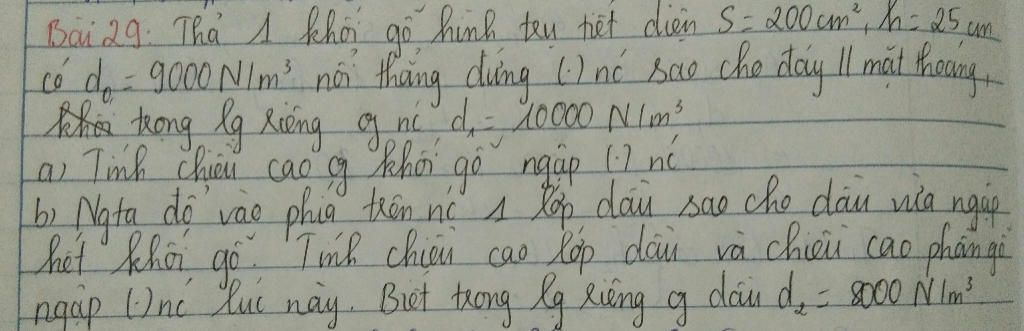 Bài 29: Thả 1 khối gỗ hình trụ tiết diện S = 200 cm², h = 25 cm
có d₀ = 9000 N/m³ nổi thẳng đứng (.) nc sao cho đáy // mặt thoáng,
trọng lg riêng of nc d₁ = 10000 N/m³
a) Tính chiều cao of khối gỗ ngập (.) nc
b) Ngta đổ vào phía trên nc 1 lớp dầu sao cho dầu vừa ngập
hết khối gỗ. Tính chiều cao lớp dầu và chiều cao phần gỗ
ngập (.) nc lúc này. Biết trọng lg riêng of dầu d₂ = 8000 N/m³.